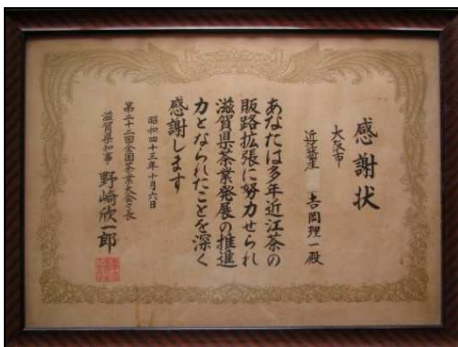 感謝状
大阪市
近江屋 吉岡理一殿
あなたは多年近江茶の
販路拡張に努力せられ
滋賀県茶業発展の推進
力となられたことを深く
感謝します
昭和四十三年十月六日
第二十二回全国茶業大会々長
滋賀県知事 野崎欣一郎